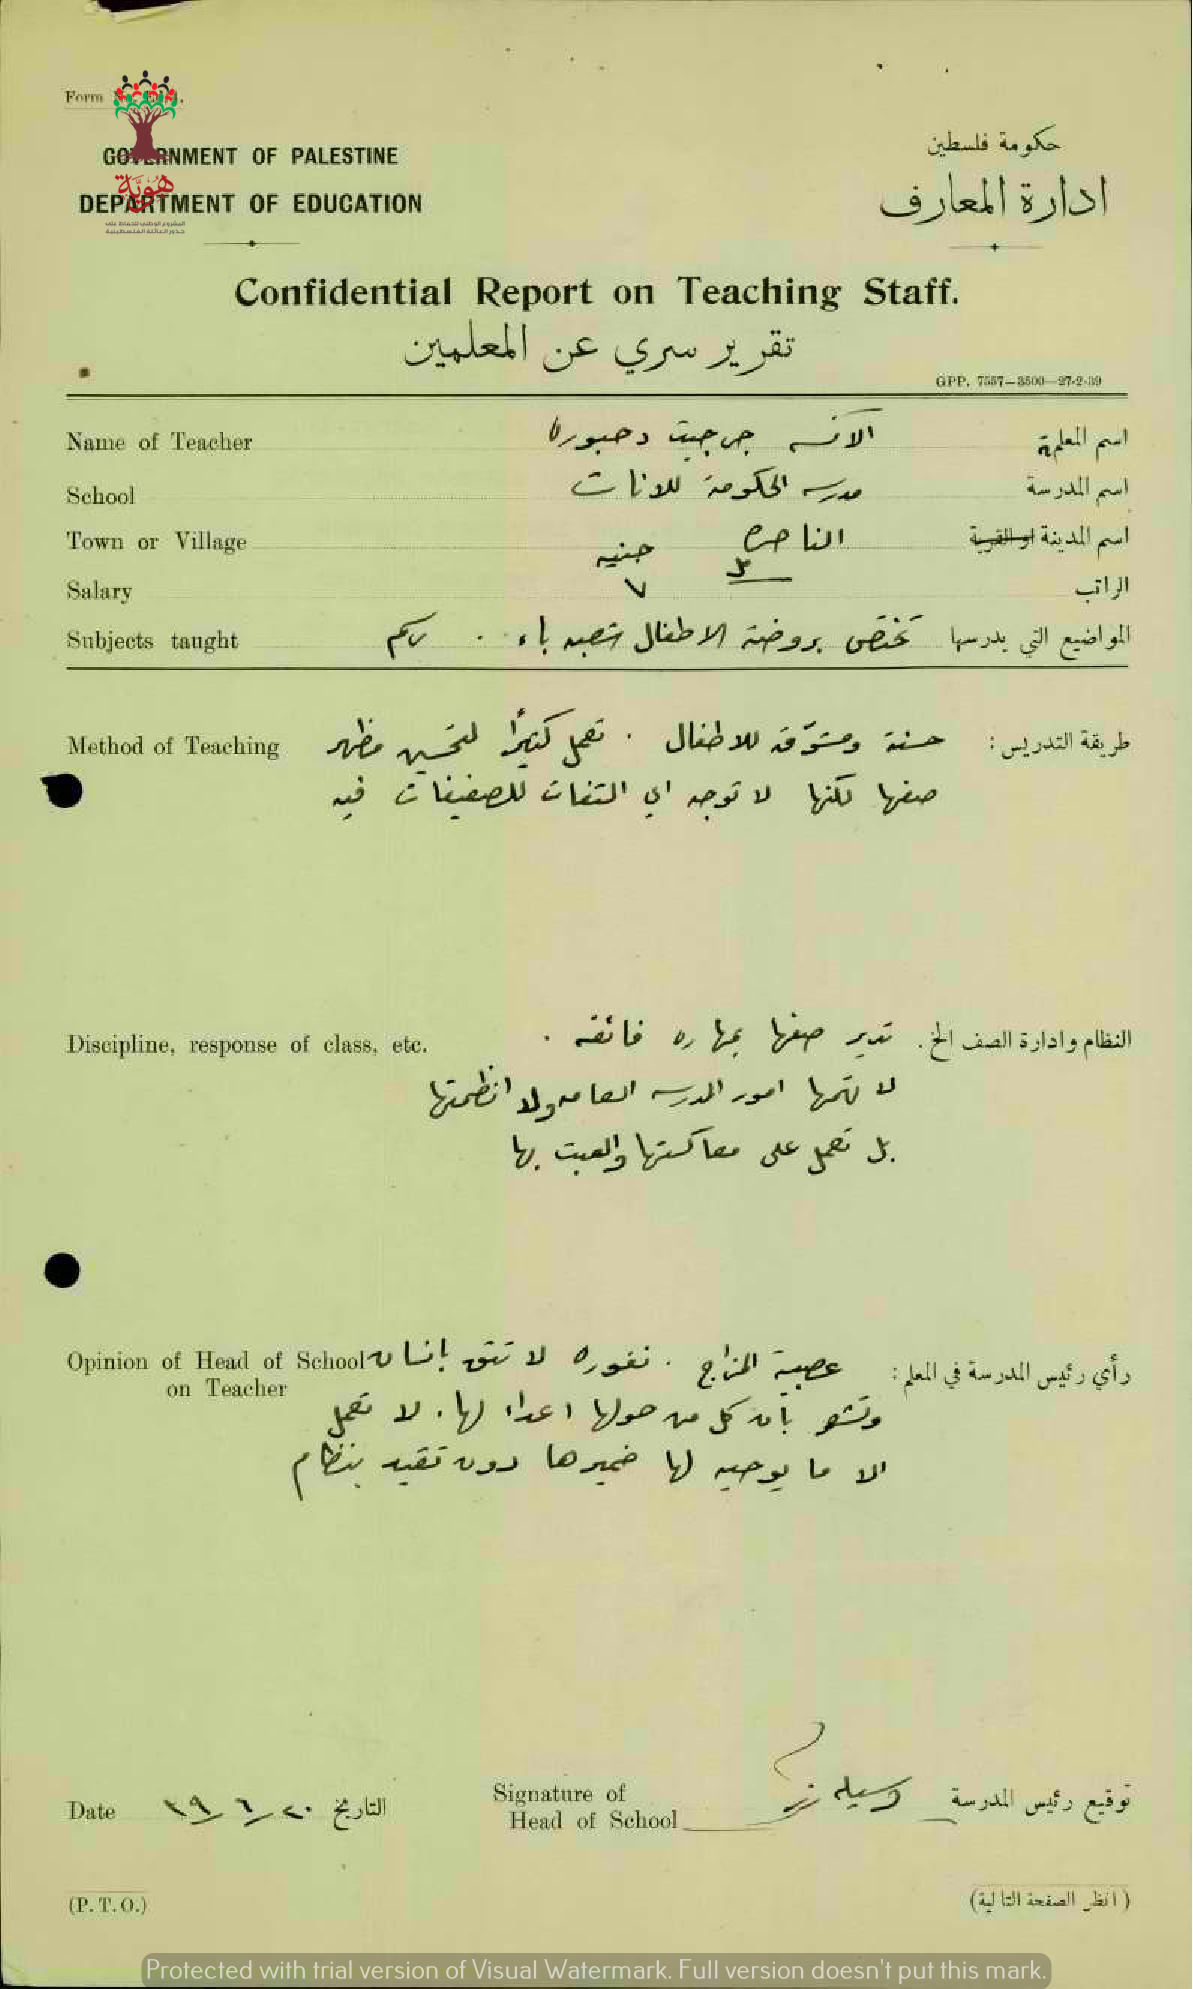 Form
GOVERNMENT OF PALESTINE
DEPARTMENT OF EDUCATION
حكومة فلسطين
ادارة المعارف
هُويَّة
Confidential Report on Teaching Staff.
تقرير سري عن المعلمين
GPP. 7557—3500—27-2-39
Name of Teacher الآنسه جورجيت دحبوره اسم المعلمة
School مدرسة الحكومة للاناث اسم المدرسة
Town or Village الناصرة اسم المدينة او القرية
جنيه
Salary ٧ الراتب
Subjects taught المواضيع التي يدرسها تختص بروضة الاطفال شعبه باء .
Method of Teaching طريقة التدريس: حسنة ومشوّقة للاطفال . تعمل كثيرًا لتحسين مظهر
صفها لكنها لا توجه اي التفات للضعيفات فيه
Discipline, response of class, etc. النظام وادارة الصف الخ. تدير صفها بمهاره فائقه .
لا تهمها امور المدرسه العامه ولا انظمتها
بل تعمل على معاكستها والعبث بها
Opinion of Head of School رأي رئيس المدرسة في المعلم: عصبية المزاج . نفوره لا تثق بإنسان
on Teacher
وتشعر بأن كل من حولها اعداء لها. لا تعمل
الا ما يوحيه لها ضميرها دون تقيد بنظام
Date ١٩/٦/٢٠ التاريخ
Signature of
Head of School
توقيع رئيس المدرسة
(P.T.O.)
(انظر الصفحة التالية)
Protected with trial version of Visual Watermark. Full version doesn't put this mark.